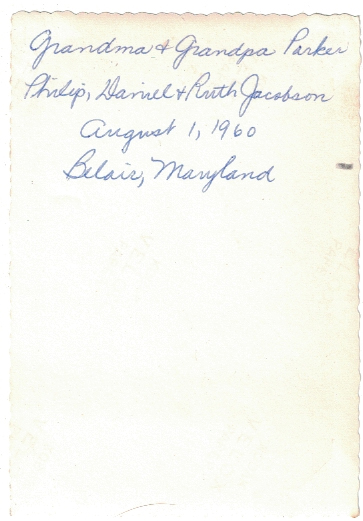 Grandma & Grandpa Parker
Philip, Daniel & Ruth Jacobson
August 1, 1960
Belair, Maryland